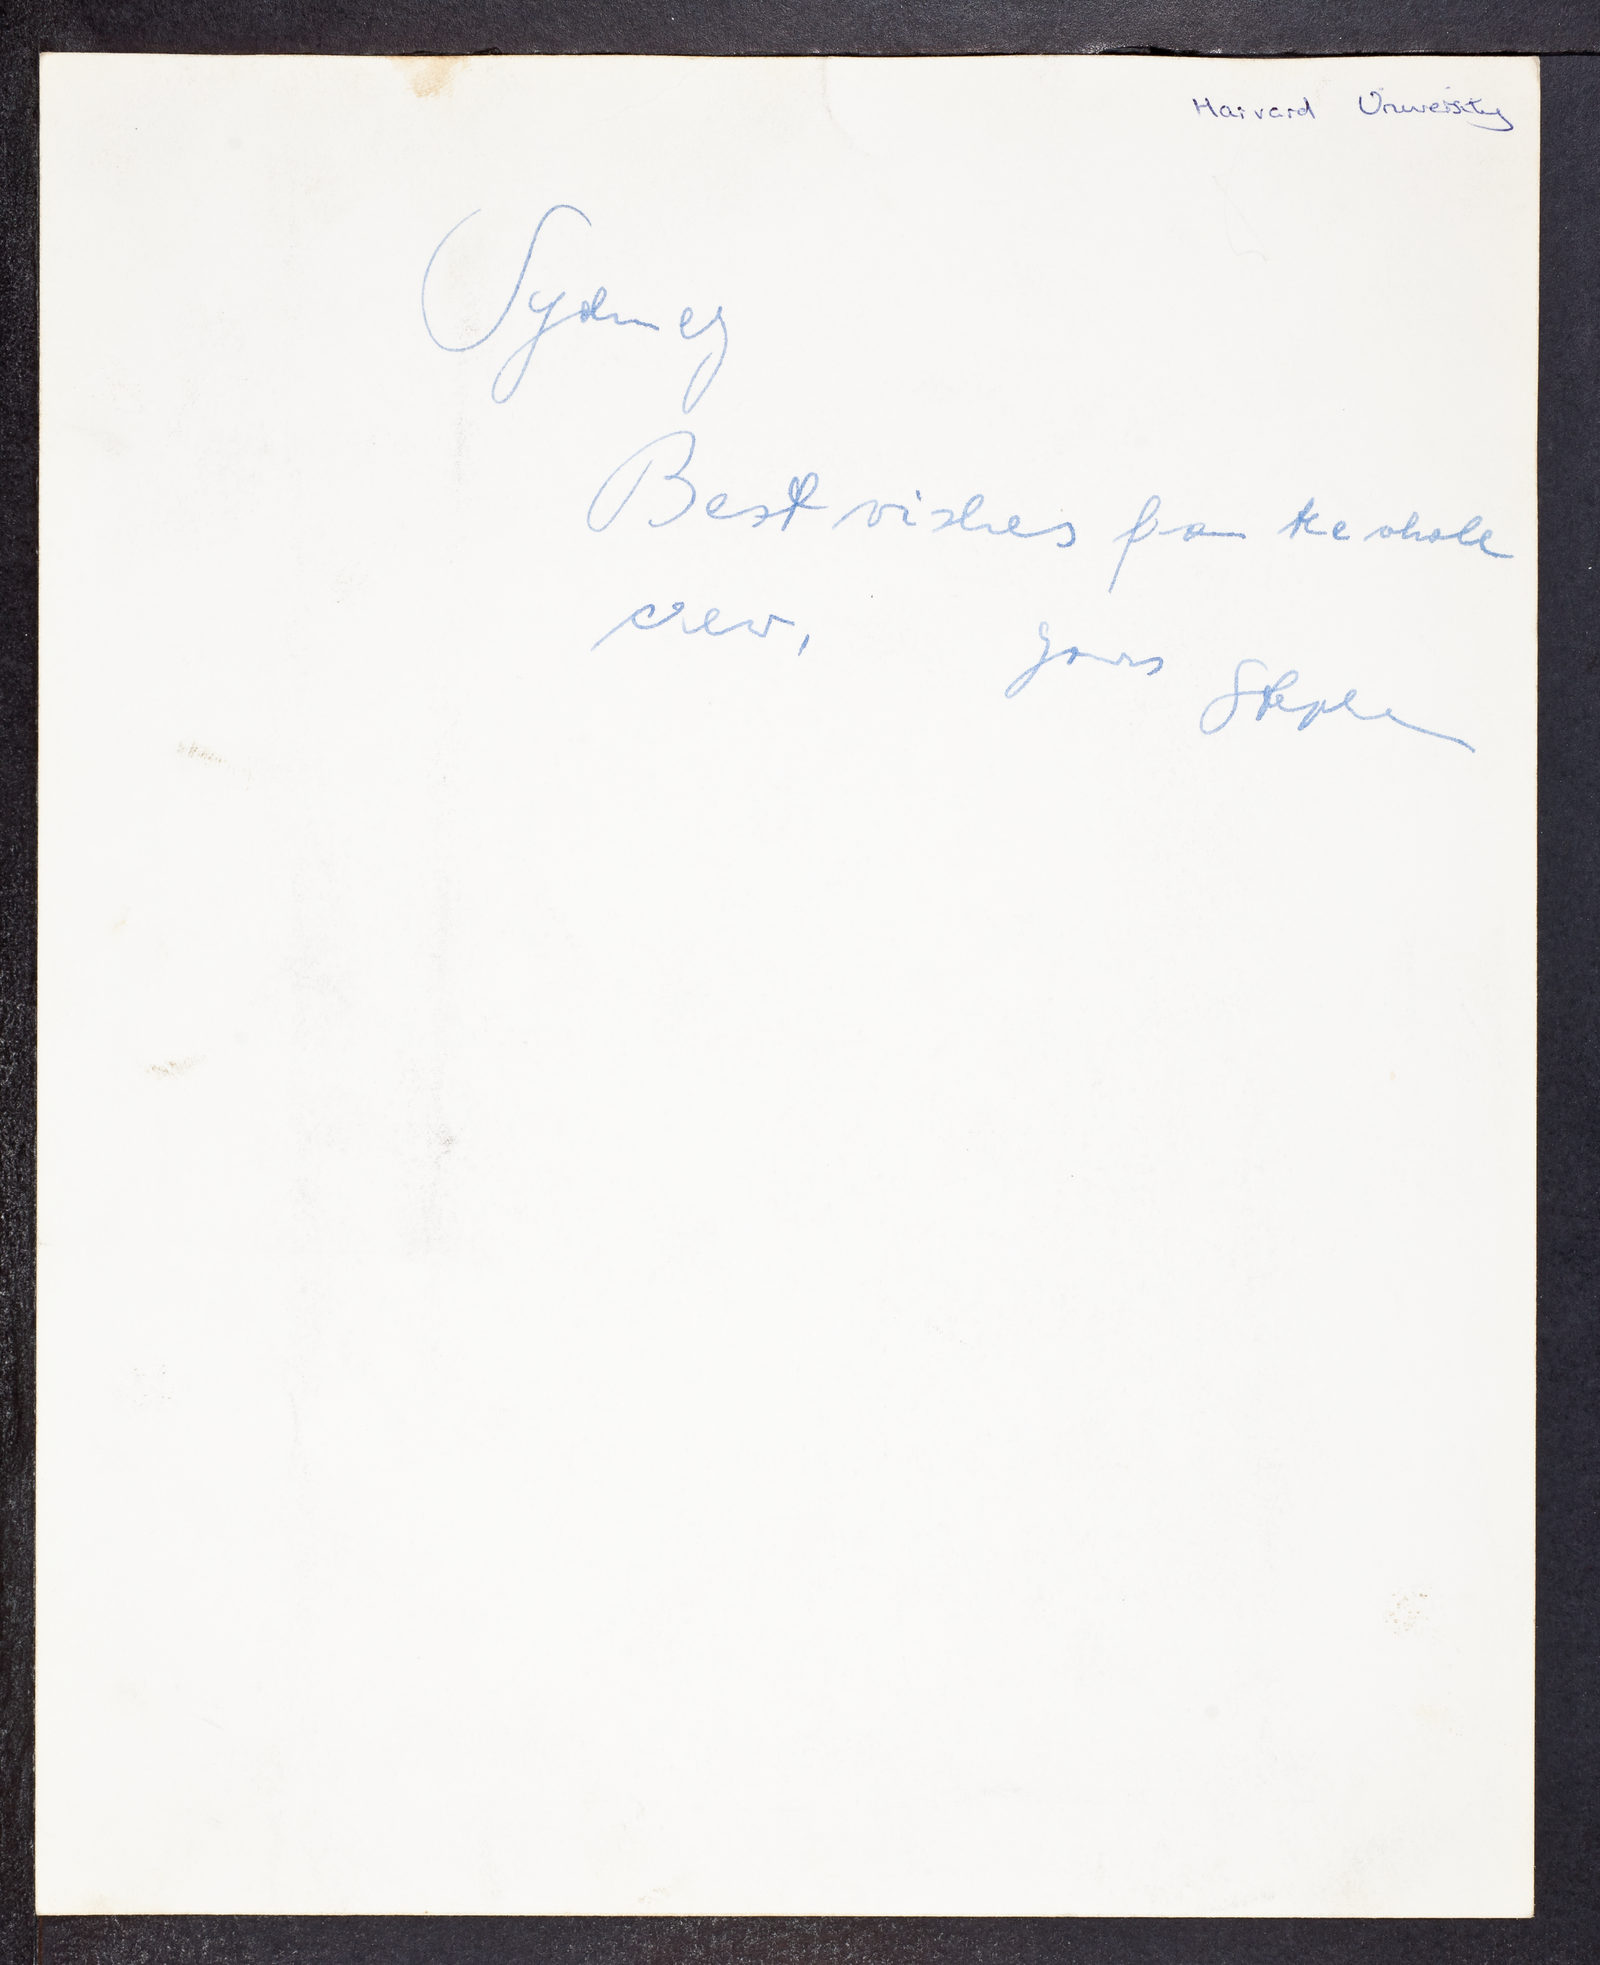 Harvard University
Sydney
Best wishes from the whole
crew,
Yours Stephen